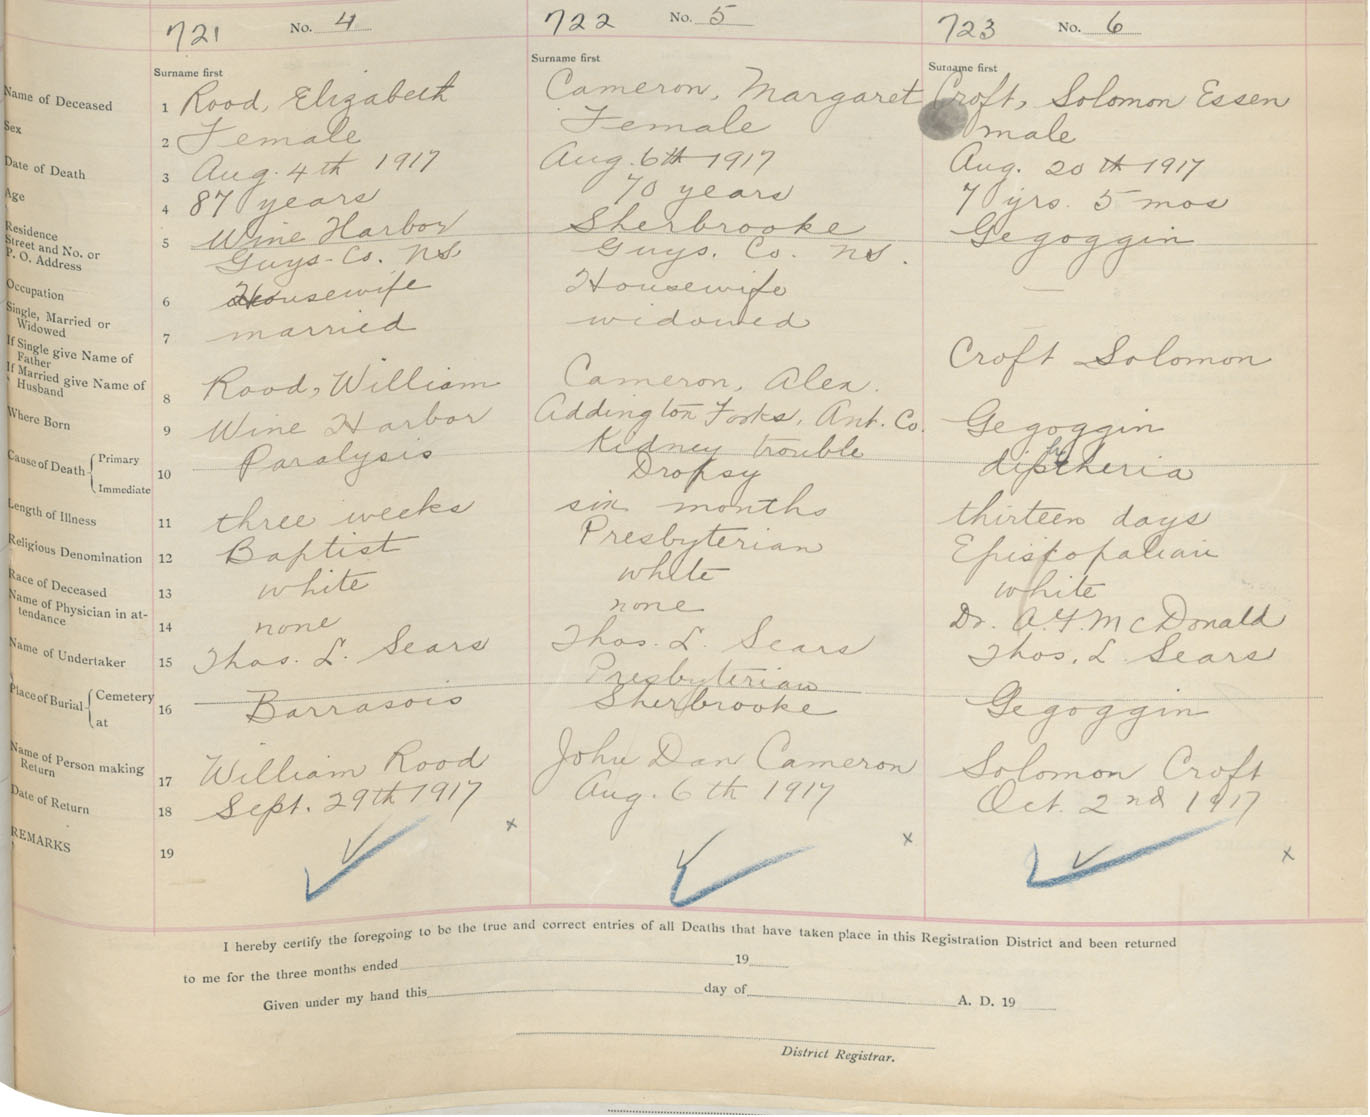 721 No. 4 722 No. 5 723 No. 6
Surname first Surname first Surname first
Name of Deceased 1 Rood, Elizabeth Cameron, Margaret Croft, Solomon Essen
Sex 2 Female Female male
Date of Death 3 Aug. 4th 1917 Aug. 6th 1917 Aug. 20th 1917
Age 4 87 years 70 years 7 yrs. 5 mos
Residence Street and No. or P. O. Address 5 Wine Harbor Sherbrooke Gegoggin
Guys. Co. NS Guys. Co. NS.
Occupation 6 Housewife Housewife —
Single, Married or Widowed 7 married widowed
If Single give Name of Father Croft Solomon
If Married give Name of Husband 8 Rood, William Cameron, Alex.
Where Born 9 Wine Harbor Addington Forks, Ant. Co. Gegoggin
Cause of Death Primary Immediate 10 Paralysis Kidney trouble diphtheria
Dropsy
Length of Illness 11 three weeks six months thirteen days
Religious Denomination 12 Baptist Presbyterian Episcopalian
Race of Deceased 13 white white white
Name of Physician in attendance 14 none none Dr. A. F. McDonald
Name of Undertaker 15 Thos. L. Sears Thos. L. Sears Thos. L Sears
Place of Burial Cemetery at 16 Barrasois Presbyterian Gegoggin
Sherbrooke
Name of Person making Return 17 William Rood John Dan Cameron Solomon Croft
Date of Return 18 Sept. 29th 1917 Aug. 6th 1917 Oct. 2nd 1917
REMARKS 19 x x x
I hereby certify the foregoing to be the true and correct entries of all Deaths that have taken place in this Registration District and been returned
to me for the three months ended 19
Given under my hand this day of A. D. 19
District Registrar.